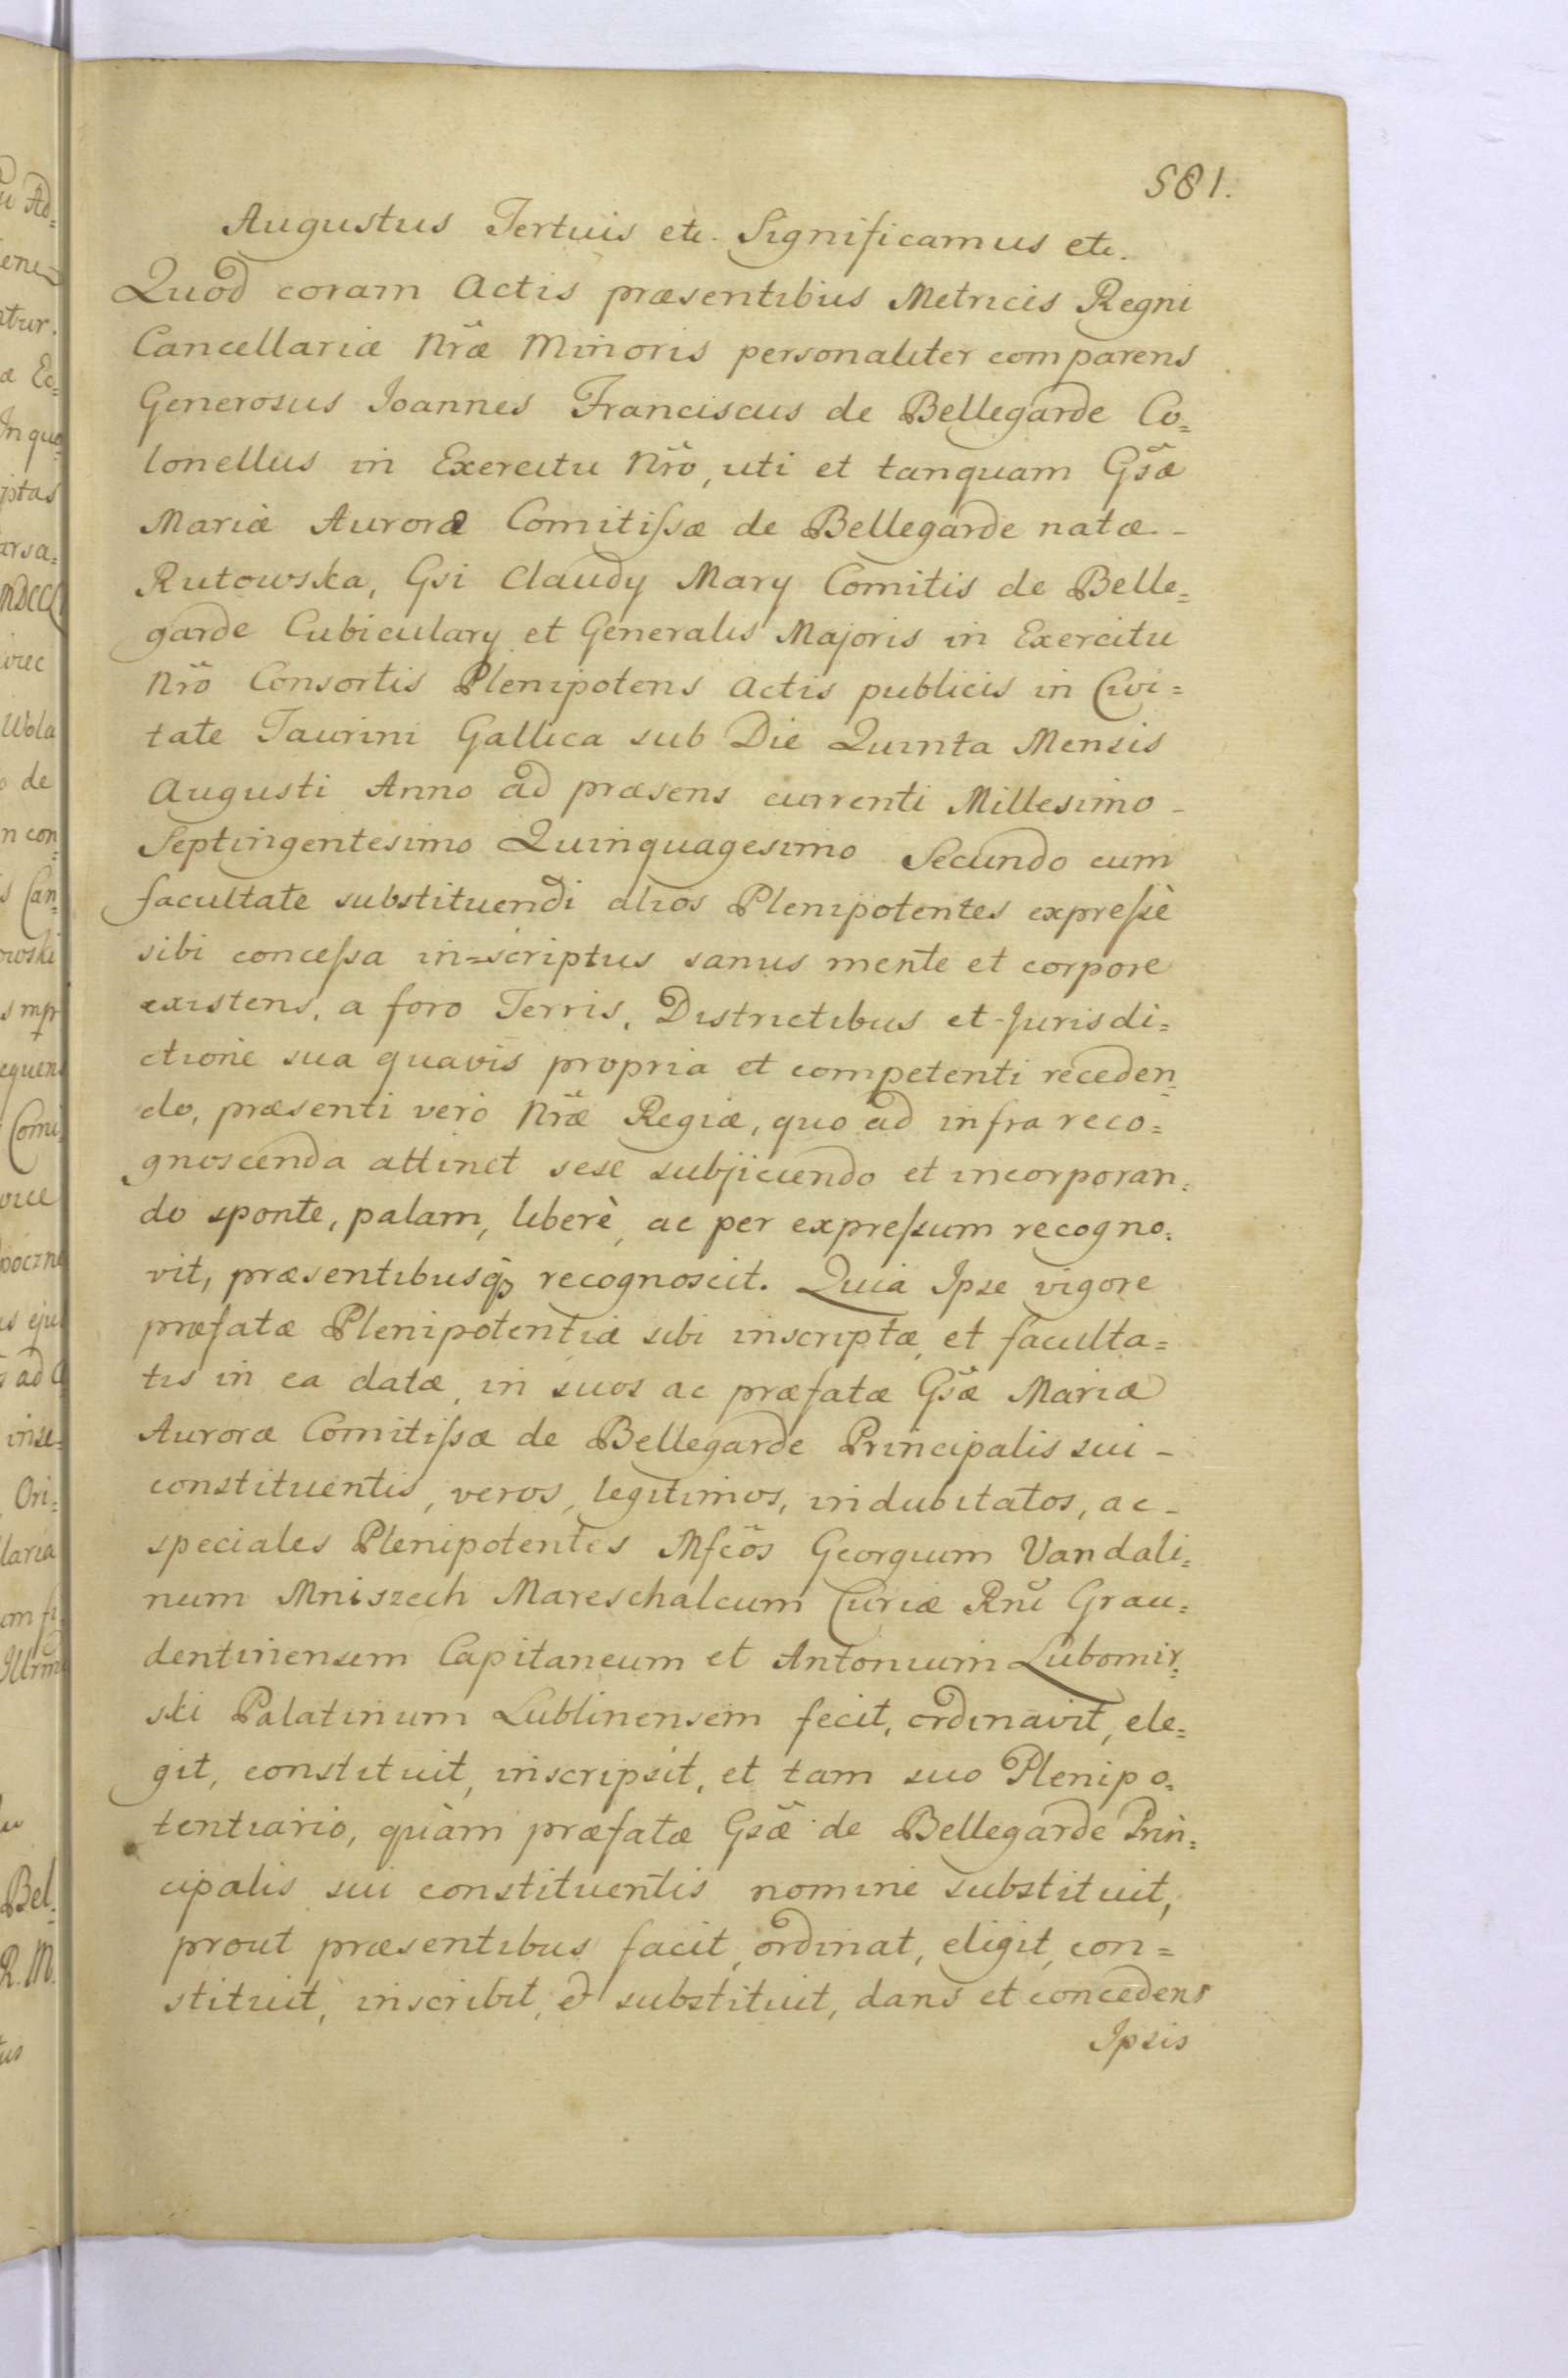 581.
Augustus Tertuis etc. Significamus etc.
Quod coram Actis præsentibus Metricis Regni
Cancellariæ Nr̃æ Minoris personaliter comparens
Generosus Joannes Franciscus de Bellegarde Co=
lonellus in Exercitu Nr̃o, uti et tanquam Gs̃æ
Mariæ Auroræ Comitiſsæ de Bellegarde natæ -
Rutowska, Gsi Claudy Mary Comitis de Belle=
garde Cubiculary et Generalis Majoris in Exercitu
Nr̃o Consortis Plenipotens Actis publicis in Civi=
tate Taurini Gallica sub Die Quinta Mensis
Augusti Anno ad præsens currenti Millesimo -
Septingentesimo Quinquagesimo Secundo cum
facultate substituendi alios Plenipotentes expreſsè
sibi conceſsa in=scriptus sanus mente et corpore
existens, a foro Terris, Districtibus et Jurisdi=
ctione sua quavis propria et competenti receden=
do, præsenti verò Nr̃æ Regiæ, quo ad infra reco=
gnoscenda attinet sese subjiciendo et incorporan=
do sponte, palam, liberè, ac per expreſsum recogno=
vit, præsentibusq3 recognoscit. Quia Ipse vigore
præfatæ Plenipotentiæ sibi inscriptæ, et faculta=
tis in ea datæ, in suos ac præfatæ Gs̃æ Mariæ
Auroræ Comitiſsæ de Bellegarde Principalis sui -
constituentis, veros, legitimos, indubitatos, ac -
speciales Plenipotentes Mfc̃os Georgium Vandali=
num Mniszech Mareschalcum Curiæ Rñi Grau=
dentinensem Capitaneum et Antonium Lubomir=
ski Palatinum Lublinensem fecit, ordinavit, ele=
git, constituit, inscripsit, et tam suo Plenipo=
tentiario, quàm præfatæ Gs̃æ de Bellegarde Prin=
cipalis sui constituentis nomine substituit,
prout præsentibus facit, ordinat, eligit, con=
stituit, inscribit, et substituit, dans et concedens
Ipsis